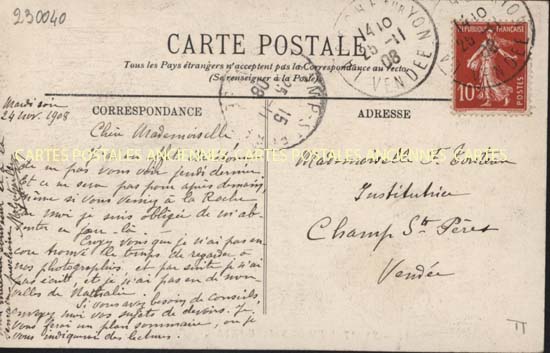 230040
CARTE POSTALE
Tous les Pays étrangers n'acceptent pas la Correspondance au Recto
(Se renseigner à la Poste)
RÉPUBLIQUE FRANÇAISE
10
POSTES
14 10
25-11
08
VENDÉE
CORRESPONDANCE
ADRESSE
Mardi soir
24 nov. 1908
Chère Mademoiselle
CARTES POSTALES ANCIENNES
ne pas vous voir jeudi dernier
et ce ne sera pas pour après demain
même si vous venez à la Roche
moi je suis obligée de m'ab-
senter ce jour-là
vous que je n'ai pas en
core trouvé le temps de regarder
nos photographies, et par suite je n'ai
pas écrit, et je n'ai pas en de nou
velles de Nathalie.
Si vous avez besoin de conseils,
envoyez moi vos sujets de devoirs. Je
vous ferai un plan sommaire, ou je
vous indiquerai des lectures.
Mademoiselle
Institutrice
Champ St Pères
Vendée